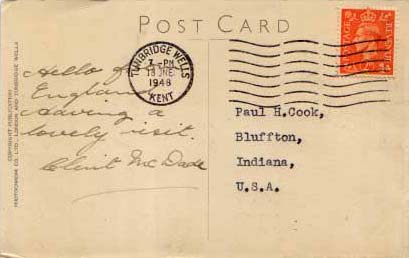 POST CARD
TUNBRIDGE WELLS
7 - PM
18 JNE
1948
KENT
POSTAGE
REVENUE
Hello from
England
Having a
lovely visit.
Clint McDade
Paul H.Cook,
Bluffton,
Indiana,
U.S.A.
COPYRIGHT PUBLISHERS:
PHOTOCHROM CO. LTD., LONDON AND TUNBRIDGE WELLS